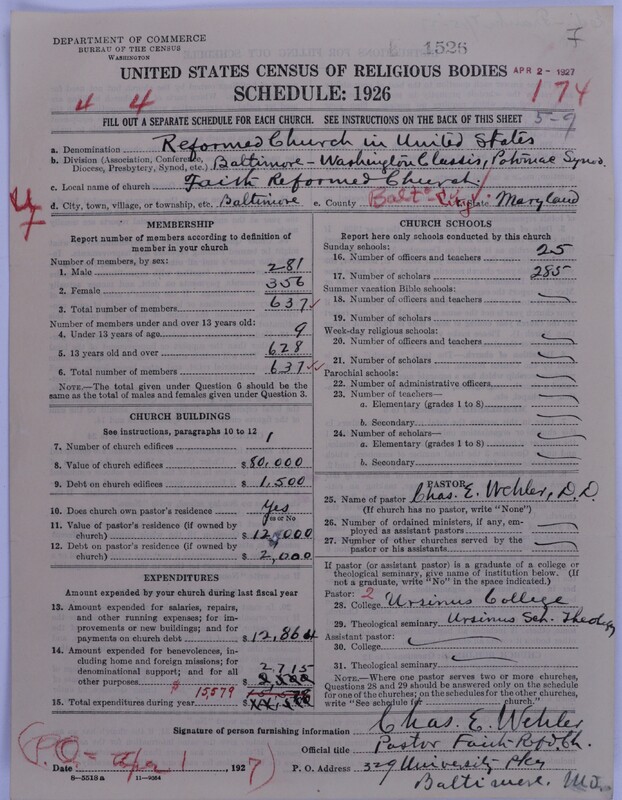 DEPARTMENT OF COMMERCE
BUREAU OF THE CENSUS
WASHINGTON
1526
UNITED STATES CENSUS OF RELIGIOUS BODIES
APR 2 - 1927
SCHEDULE: 1926
4 4
174
FILL OUT A SEPARATE SCHEDULE FOR EACH CHURCH. SEE INSTRUCTIONS ON THE BACK OF THIS SHEET
5-9
a. Denomination Reformed Church in United States
b. Division (Association, Conference, Diocese, Presbytery, Synod, etc.) Baltimore-Washington Classis, Potomac Synod.
c. Local name of church Faith Reformed Church
d. City, town, village, or township, etc. Baltimore e. County Balto City State Maryland
MEMBERSHIP
Report number of members according to definition of member in your church
Number of members, by sex:
1. Male 281
2. Female 356
3. Total number of members 637
Number of members under and over 13 years old:
4. Under 13 years of age 9
5. 13 years old and over 628
6. Total number of members 637
NOTE.—The total given under Question 6 should be the
same as the total of males and females given under Question 3.
CHURCH BUILDINGS
See instructions, paragraphs 10 to 12
7. Number of church edifices 1
8. Value of church edifices $ 80,000
9. Debt on church edifices $ 1,500
10. Does church own pastor's residence Yes
Yes or No
11. Value of pastor's residence (if owned by
church) $ 12,000
12. Debt on pastor's residence (if owned by
church) $ 2,000
EXPENDITURES
Amount expended by your church during last fiscal year
13. Amount expended for salaries, repairs,
and other running expenses; for im-
provements or new buildings; and for
payments on church debt $ 12,864
14. Amount expended for benevolences, in-
cluding home and foreign missions; for
denominational support; and for all
other purposes $ 2,715
15. Total expenditures during year $ 15,579
CHURCH SCHOOLS
Report here only schools conducted by this church
Sunday schools:
16. Number of officers and teachers 25
17. Number of scholars 285
Summer vacation Bible schools:
18. Number of officers and teachers
19. Number of scholars
Week-day religious schools:
20. Number of officers and teachers
21. Number of scholars
Parochial schools:
22. Number of administrative officers
23. Number of teachers—
a. Elementary (grades 1 to 8)
b. Secondary
24. Number of scholars—
a. Elementary (grades 1 to 8)
b. Secondary
PASTOR
25. Name of pastor Chas. E. Wehler, D.D.
(If church has no pastor, write "None")
26. Number of ordained ministers, if any, em-
ployed as assistant pastors
27. Number of other churches served by the
pastor or his assistants
If pastor (or assistant pastor) is a graduate of a college or
theological seminary, give name of institution below. (If
not a graduate, write "No" in the space indicated.)
Pastor: 2
28. College Ursinus College
29. Theological seminary Ursinus Sch. Theology
Assistant pastor:
30. College
31. Theological seminary
NOTE.—Where one pastor serves two or more churches,
Questions 28 and 29 should be answered only on the schedule
for one of the churches; on the schedules for the other churches,
write "See schedule for church."
Signature of person furnishing information Chas. E. Wehler
Official title Pastor Faith Refd. Ch.
Date (P.O. - Apr 1 1927)
P. O. Address 329 University Pky
8-5518a 11-9264
Baltimore, Md.